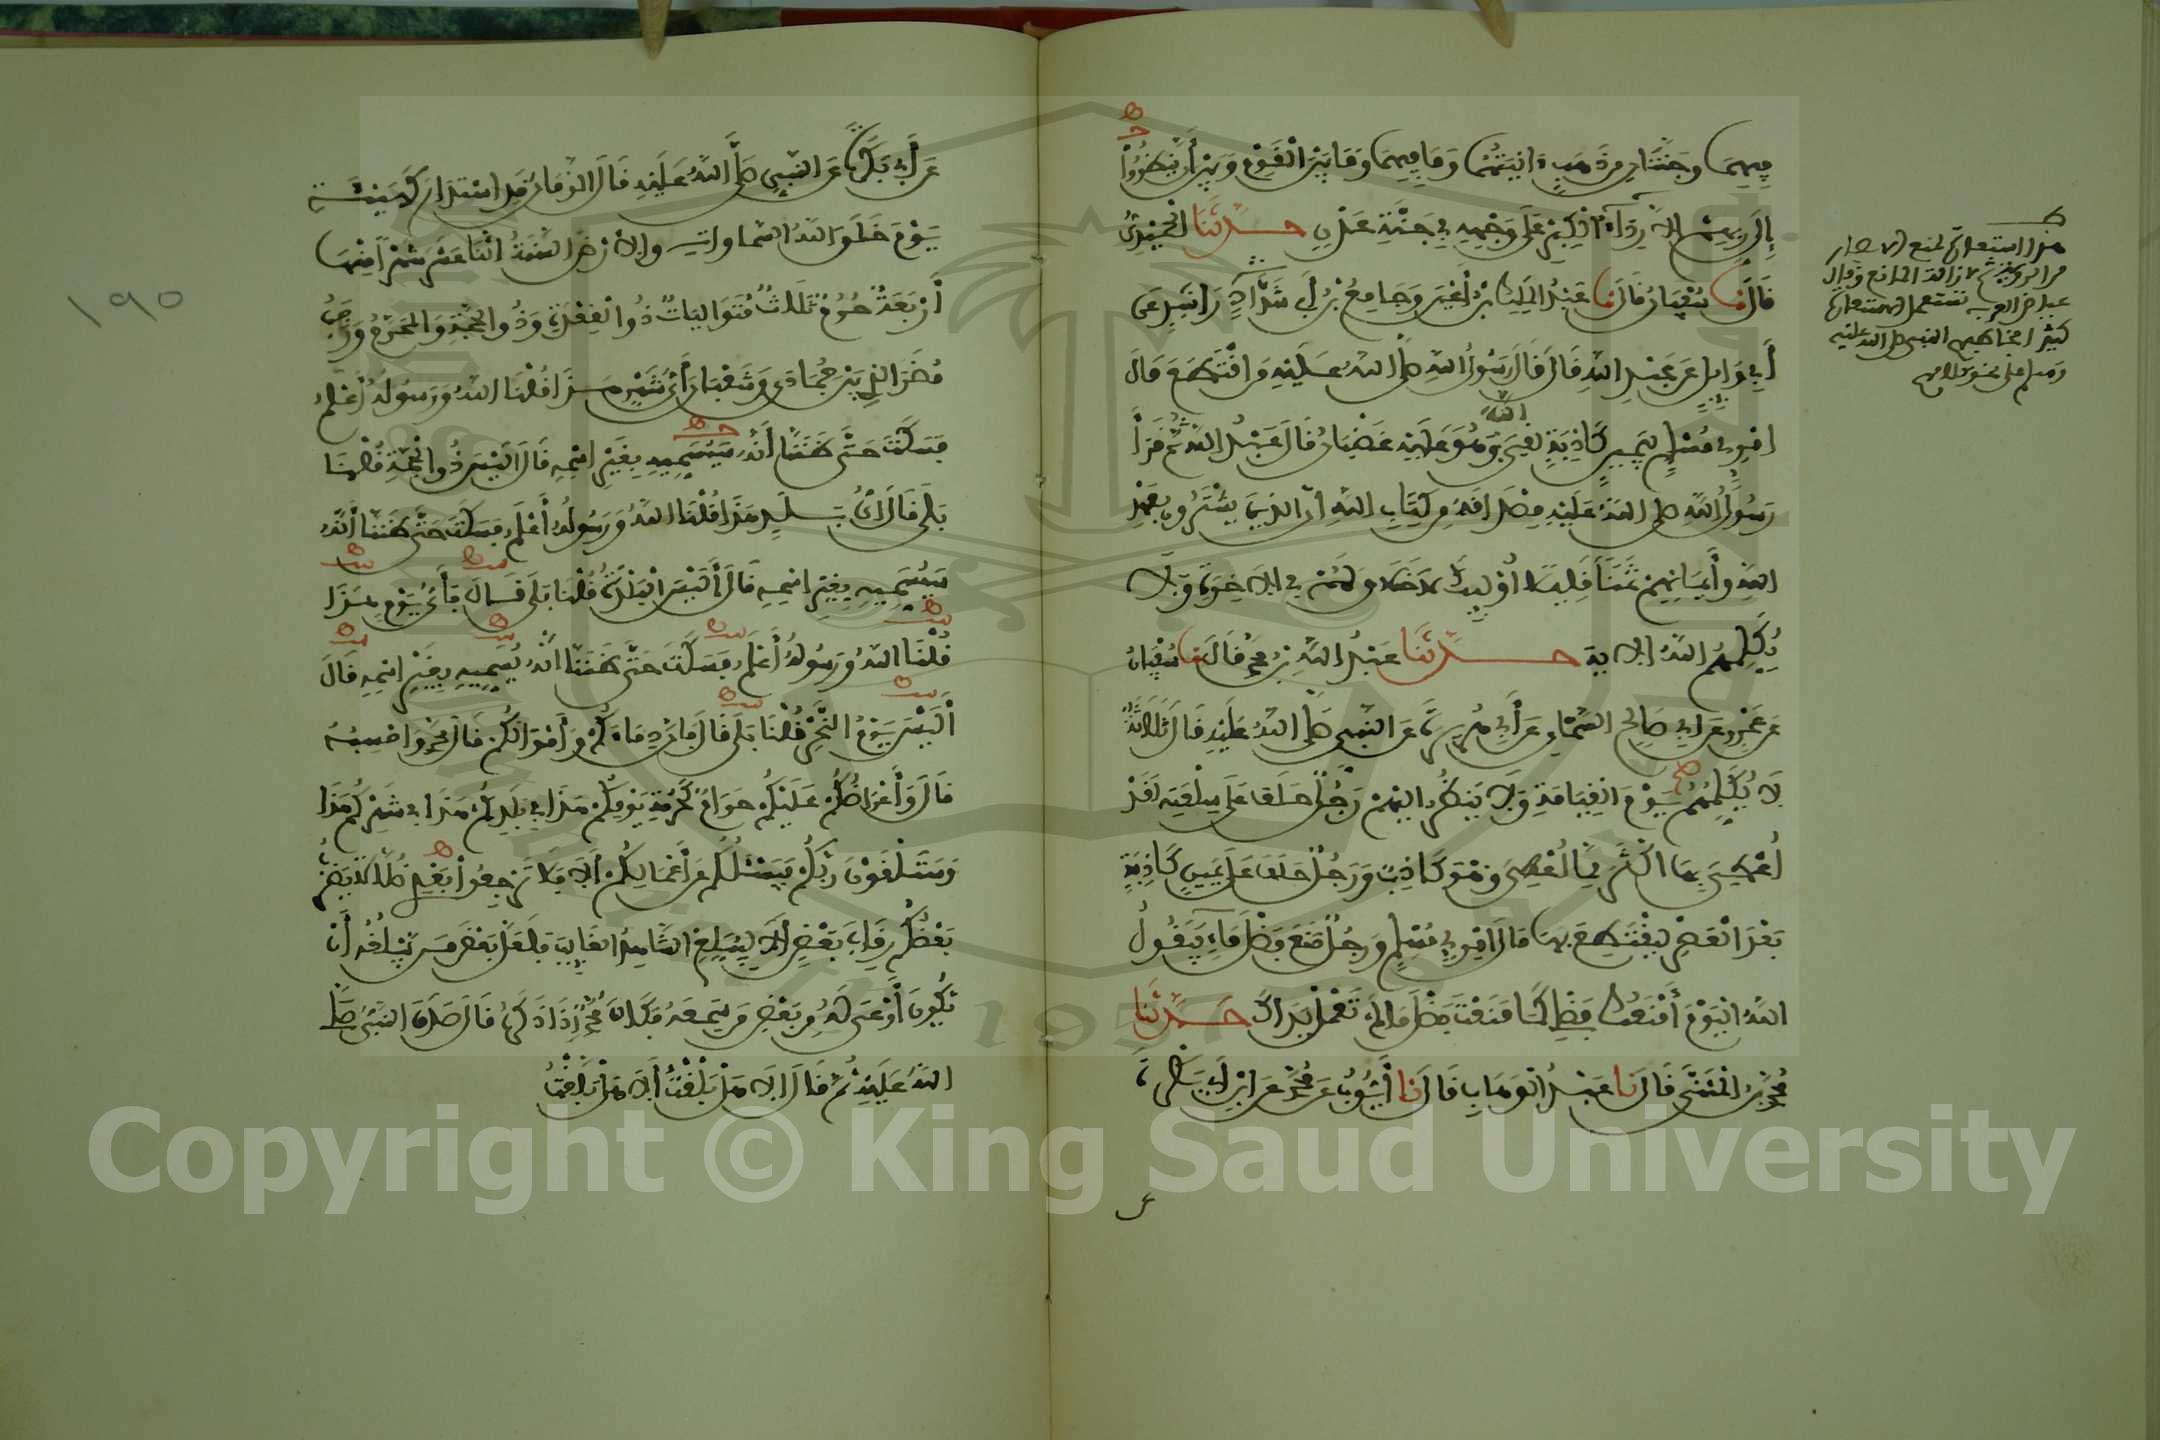 فيهما وجنتان من ذهب ءانيتهما وما فيهما وما بين القوم وبين أن ينظروا
إلى ربهم إلا رداء الكبر على وجهه في جنة عدن حدثنا الحميدي
قال نا سفيان قال نا عبد الملك بن أعين وجامع بن أبي شداد عن
أبي وايل عن عبد الله قال قال رسول الله صلى الله عليه من اقتطع مال
امرئ مسلم بيمين كاذبة لقي الله وهو عليه غضبان قال عبد الله ثم قرأ
رسول الله صلى الله عليه مصداقه من كتاب الله ان الذين يشترون بعهد
الله وأيمانهم ثمنا قليلا اوليك لا خلاق لهم في الاخرة ولا
يكلمهم الله الاية حدثنا عبد الله بن محمد قال نا سفيان
عن عمرو عن أبي صالح السمان عن أبي هريرة عن النبي صلى الله عليه قال ثلاثة
لا يكلمهم يوم القيامة ولا ينظر اليهم رجل حلف على سلعته لقد
أعطي بها اكثر مما أعطي وهو كاذب ورجل حلف على يمين كاذبة
بعد العصر ليقتطع بها مال امرئ مسلم ورجل منع فضل ماء فيقول
الله اليوم أمنعك فضلي كما منعت فضل ما لم تعمل يداك حدثنا
محمد بن المثنى قال نا عبد الوهاب قال نا أيوب عن محمد عن ابن أبي بكرة
هذا استعمل
كثيرا مخاطبهم النبي صلى الله عليه
وسلم على نحو كلامهم
١٩٥
عن أبي بكرة عن النبي صلى الله عليه قال الزمان قد استدار كهيئته
يوم خلق الله السماوات والارض السنة اثنا عشر شهرا منها
أربعة حرم ثلاث متواليات ذو القعدة وذو الحجة والمحرم ورجب
مضر الذي بين جمادى وشعبان أي شهر هذا قلنا الله ورسوله أعلم
فسكت حتى ظننا أنه سيسميه بغير اسمه قال اليس ذو الحجة قلنا
بلى قال أي بلد هذا قلنا الله ورسوله أعلم فسكت حتى ظننا أنه
سيسميه بغير اسمه قال أليس البلدة قلنا بلى قال فأي يوم هذا
قلنا الله ورسوله أعلم فسكت حتى ظننا انه يسميه بغير اسمه قال
أليس يوم النحر قلنا بلى قال فان دماءكم وأموالكم قال محمد واحسبه
قال وأعراضكم عليكم حرام كحرمة يومكم هذا في بلدكم هذا في شهركم هذا
وستلقون ربكم فيسئلكم عن أعمالكم ألا فلا ترجعوا بعدي ضلالا يضرب
بعضكم رقاب بعض ألا ليبلغ الشاهد الغايب فلعل بعض من يبلغه أن
يكون أوعى له من بعض من سمعه فكان محمد إذا ذكره قال صدق النبي صلى
الله عليه ثم قال الا هل بلغت ألا هل بلغت